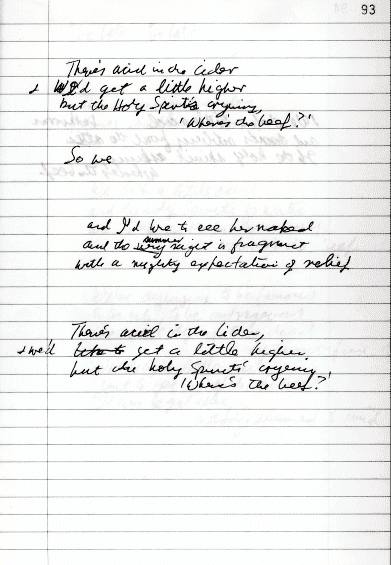 93
There's acid in the cider
& We'd get a little higher
but the Holy Spirit's crying,
'Where's the beef?'
So we
and I'd love to see her naked
summer
and the night is fragrant
with a mighty expectation of relief
There's acid in the cider,
& we'd like to get a little higher,
but the holy Spirit's crying,
'Where's the beef?'